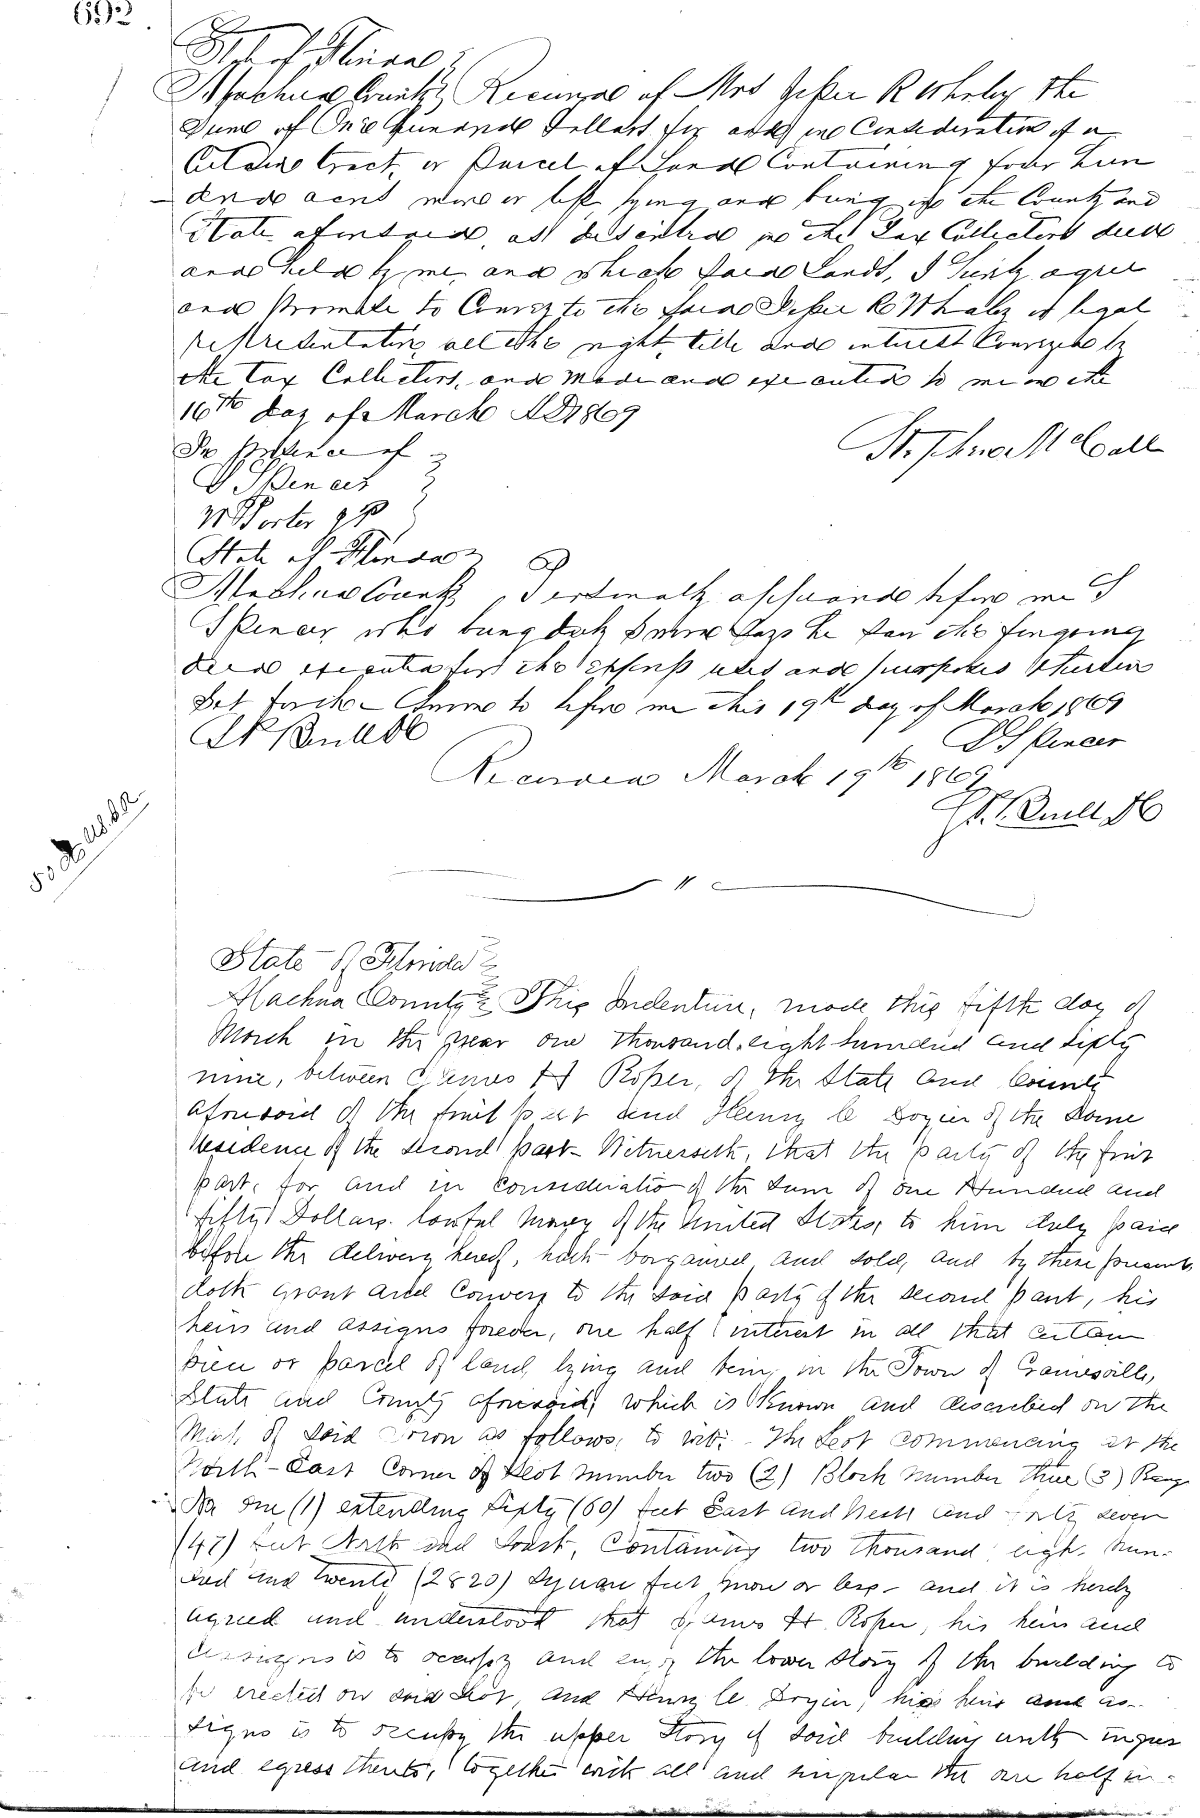 692
State of Florida
Alachua County Received of Mrs Jesse R Whaley the
Sum of One Hundred Dollars for and in Consideration of a
Certain tract or Parcel of Land Containing four hun
dred acres more or less lying and being in the County and
State aforesaid, as described in the Tax Collectors deed
and held by me, and which said Lands, I hereby agree
and Promise to Convey to the said Jesse R Whaley or legal
representative all the right, title and interest Conveyed by
the Tax Collectors, and made and executed to me on the
16th day of March AD 1869
In presence of
Stephen McCall
D Spencer
W Porter JP
State of Florida
Alachua County Personally appeared before me D
Spencer who being duly Sworn Says he saw the foregoing
deed executed for the express uses and purposes therein
Set forth - Sworn to before me this 19th day of March 1869
D Spencer
Recorded March 19th 1869
State of Florida
Alachua County This Indenture, made this fifth day of
March in the year one thousand eight hundred and sixty
nine, between James H Roper, of the State and County
aforesaid of the first part and Henry C Dozier of the same
residence of the second part - Witnesseth, that the party of the first
part, for and in consideration of the sum of one Hundred and
fifty Dollars lawful money of the United States, to him duly paid
before the delivery hereof, hath bargained and sold, and by these presents
doth grant and convey to the said party of the second part, his
heirs and assigns forever, one half interest in all that certain
piece or parcel of land, lying and being in the Town of Gainesville,
State and County aforesaid, which is Known and described on the
Map of said Town as follows, to wit: The Lot commencing at the
North-East Corner of Lot number two (2) Block number three (3) Range
No one (1) extending Sixty (60) feet East and West and forty seven
(47) feet North and South, Containing two thousand eight hun-
dred and twenty (2820) Square feet more or less - and it is hereby
agreed and understood that James H. Roper, his heirs and
assigns is to occupy and enjoy the lower story of the building to
be erected on said Lot, and Henry C Dozier, his heirs and as-
signs is to occupy the upper Story of said building with ingress
and egress thereto, together with all and singular the one half in-